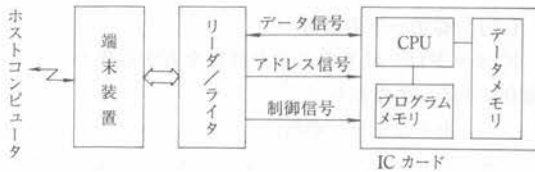 ホストコンピュータ
端末装置
リーダ/ライタ
データ信号
アドレス信号
制御信号
CPU
プログラム
メモリ
データメモリ
IC カード